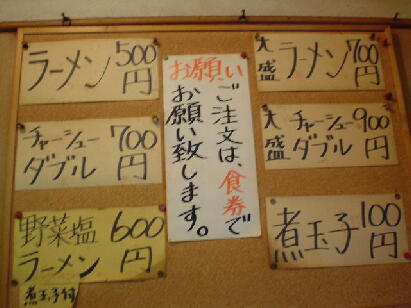 ラーメン 500円
チャーシューダブル 700円
野菜塩ラーメン 600円
煮玉子付
お願い
ご注文は、食券で
お願い致します。
大盛 ラーメン 700円
大盛 チャーシューダブル 900円
煮玉子 100円